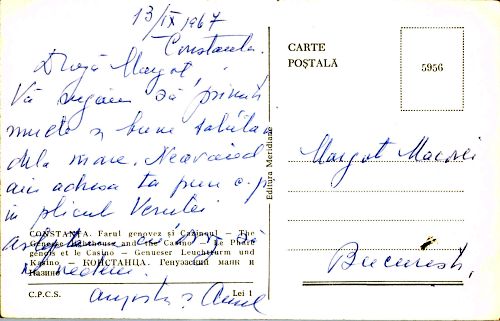 13/IX 1967
Constanța.
Dragă Margot,
Vă rugăm să primiți
multe și bune salutări
dela mare. Neavând
aici adresa ta pun c.p.
in plicul
CONSTANȚA. Farul genovez și Cazinoul — The
Genoese Lighthouse and the Casino — Le Phare
génois et le Casino — Genueser Leuchtturm und
Kasino — КОНСТАНЦА. Генуэзский маяк и
Казино
C.P.C.S.
Lei 1
Editura Meridiane
CARTE
POȘTALĂ
5956
Margot
București,